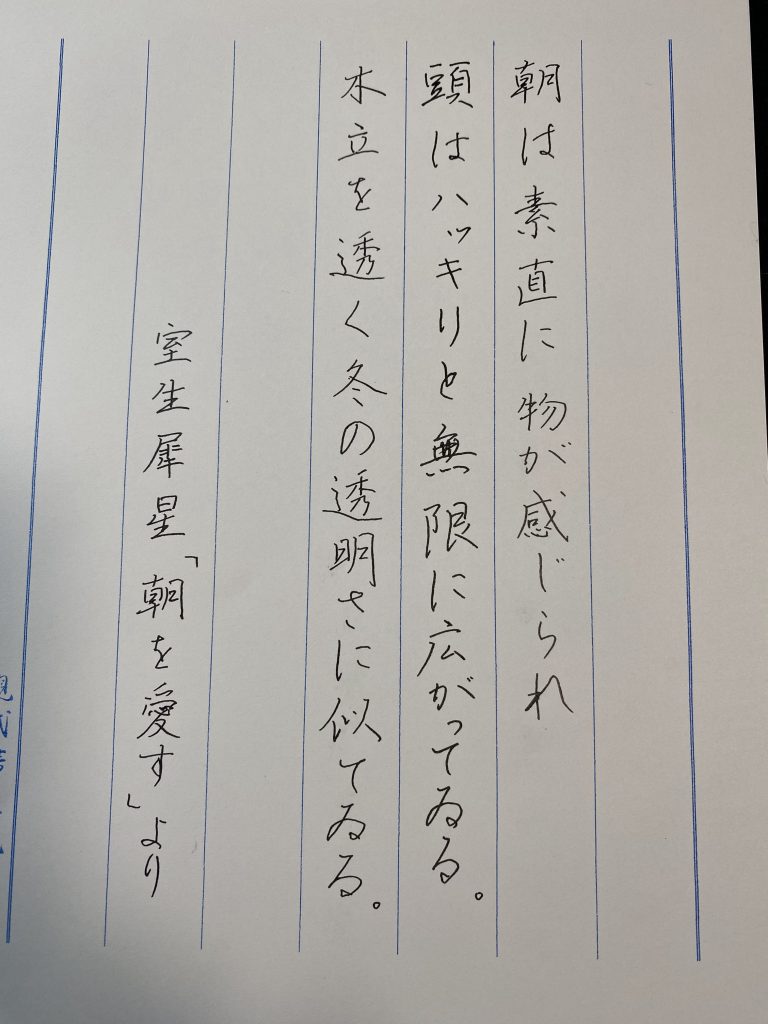 朝は素直に物が感じられ
頭はハッキリと無限に広がってゐる。
木立を透く冬の透明さに似てゐる。
室生犀星「朝を愛す」より